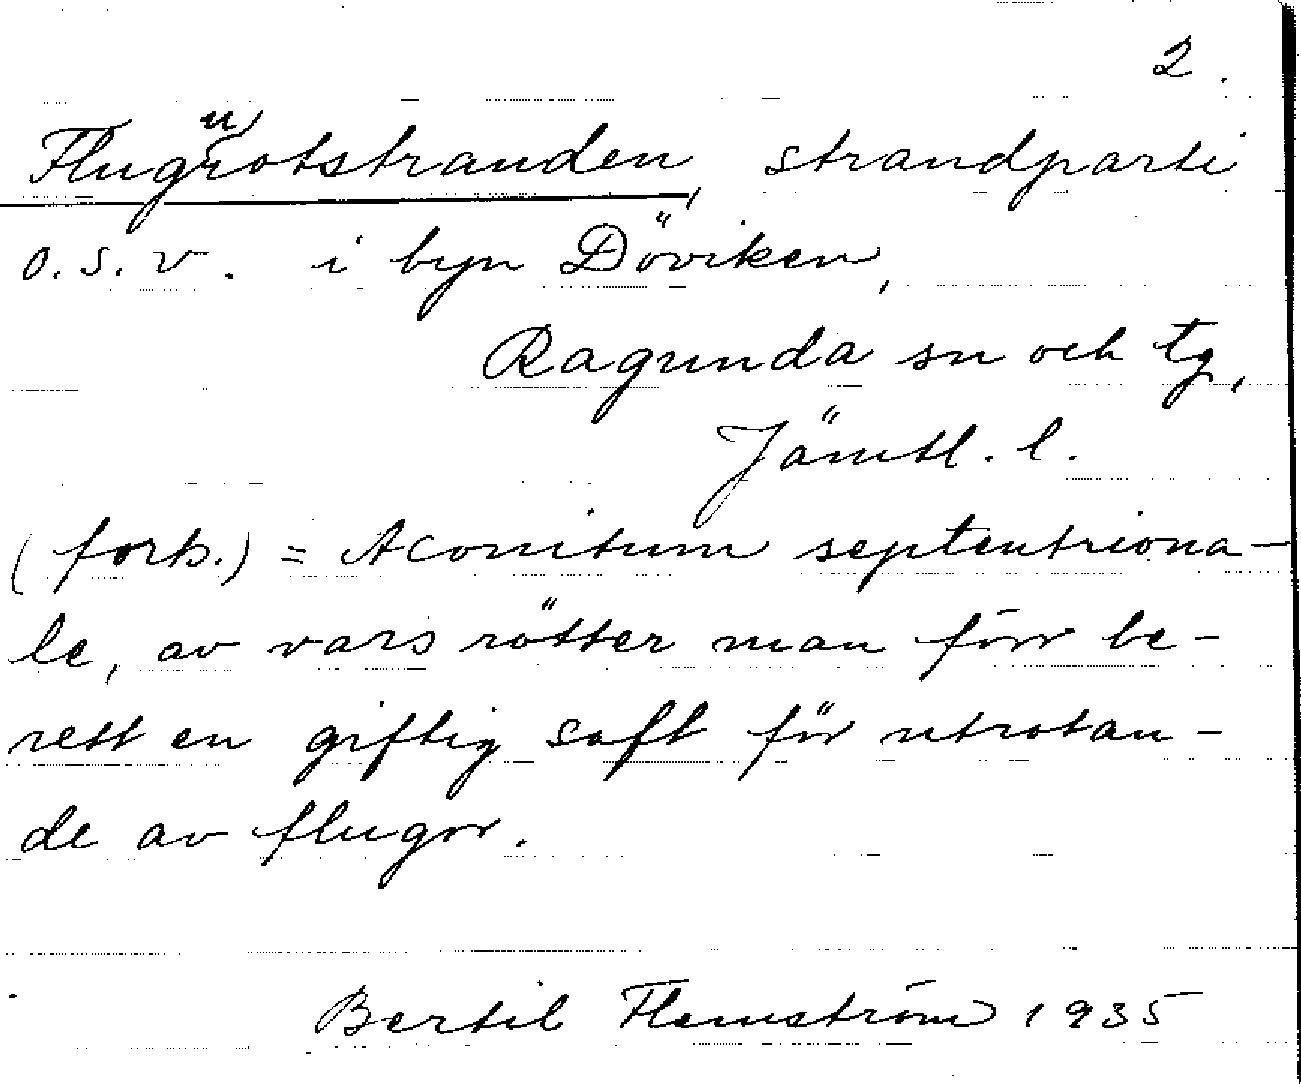 2.
Flugurotstranden, strandparti
o. s. v. i byn Döviken,
Ragunda sn och tg,
Jämtl. l.
(forts.) = Aconitum septentriona-
le, av vars rötter man förr be-
rett en giftig saft för utrotan-
de av flugor.
Bertil Flemström 1935